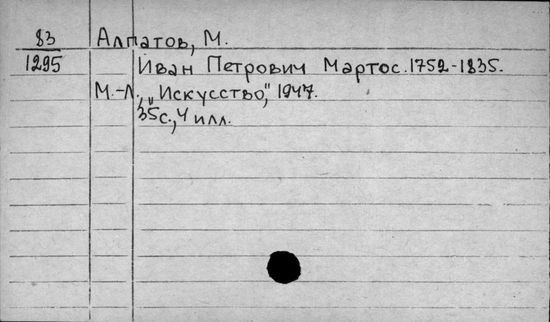 83 Алпатов, М.
1295 Иван Петрович Мартос. 1752-1835.
М.-Л., „Искусство", 1947.
35с., 4 илл.